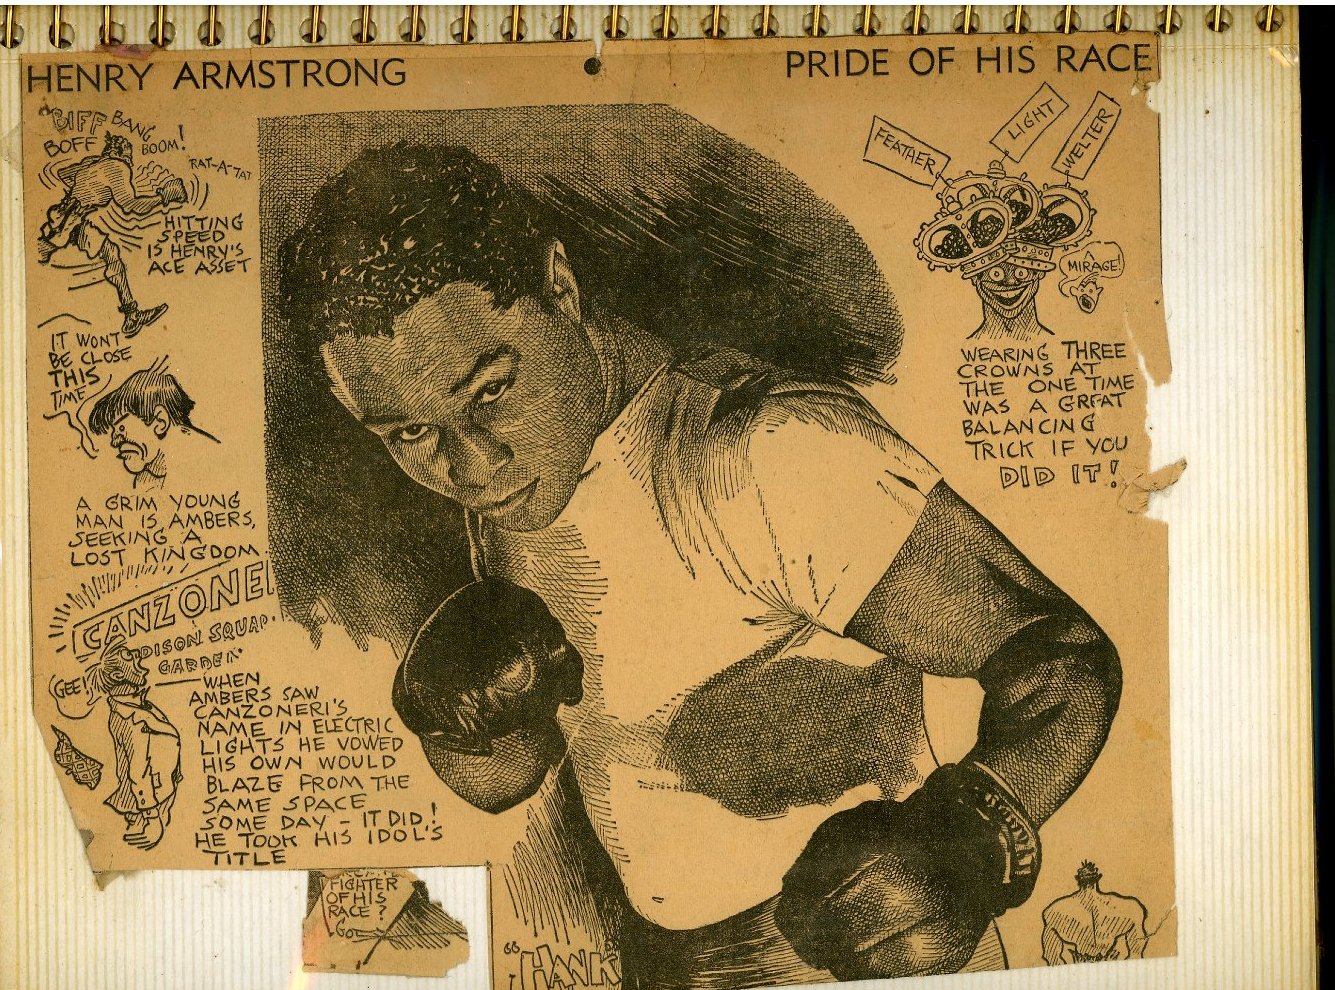 HENRY ARMSTRONG
PRIDE OF HIS RACE
"BIFF BANG
BOFF BOOM!
RAT-A-TAT
HITTING
SPEED
IS HENRY'S
ACE ASSET
IT WONT
BE CLOSE
THIS
TIME
A GRIM YOUNG
MAN IS AMBERS,
SEEKING A
LOST KINGDOM.
CANZONE
DISON SQUAR
GARDEN
GEE!
WHEN
AMBERS SAW
CANZONERI'S
NAME IN ELECTRIC
LIGHTS HE VOWED
HIS OWN WOULD
BLAZE FROM THE
SAME SPACE
SOME DAY - IT DID!
HE TOOK HIS IDOL'S
TITLE
FEATHER
LIGHT
WELTER
A
MIRAGE!
WEARING THREE
CROWNS AT
THE ONE TIME
WAS A GREAT
BALANCING
TRICK IF YOU
DID IT!
FIGHTER
OF HIS
RACE?
"HANK